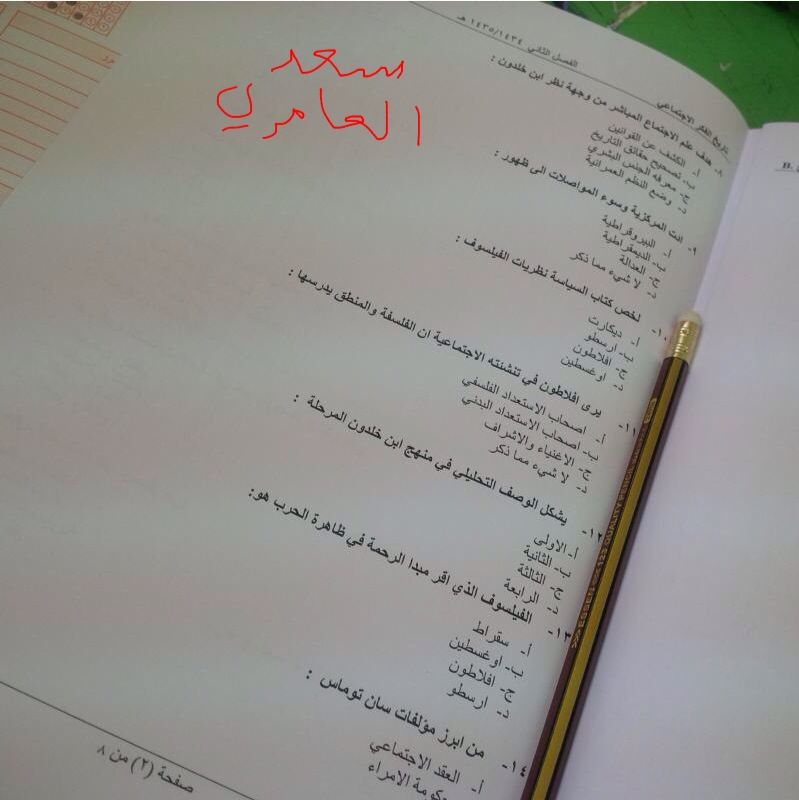 الفصل الثاني ١٤٣٥/١٤٣٤ هـ
تاريخ الفكر الاجتماعي
سعد
العامري
٨- هدف علم الاجتماع المباشر من وجهة نظر ابن خلدون :
أ- الكشف عن القوانين
ب- تصحيح حقائق التاريخ
ج- معرفه الجنس البشري
د- وضع النظم العمرانية
٩- ادت المركزية وسوء المواصلات الى ظهور :
أ- البيروقراطية
ب- الديمقراطية
ج- العدالة
د- لا شيء مما ذكر
١٠- لخص كتاب السياسة نظريات الفيلسوف :
أ- ديكارت
ب- ارسطو
ج- افلاطون
د- اوغسطين
١١- يرى افلاطون في تنشئته الاجتماعية ان الفلسفة والمنطق يدرسها :
أ- اصحاب الاستعداد الفلسفي
ب- اصحاب الاستعداد البدني
ج- الاغنياء والاشراف
د- لا شيء مما ذكر
١٢- يشكل الوصف التحليلي في منهج ابن خلدون المرحلة :
أ- الاولى
ب- الثانية
ج- الثالثة
د- الرابعة
١٣- الفيلسوف الذي اقر مبدا الرحمة في ظاهرة الحرب هو:
أ- سقراط
ب- اوغسطين
ج- افلاطون
د- ارسطو
١٤- من ابرز مؤلفات سان توماس :
أ- العقد الاجتماعي
حكومة الامراء
صفحة (٢) من ٨
B.
>>> ESSEN >>> 123 QUALITY PENCIL